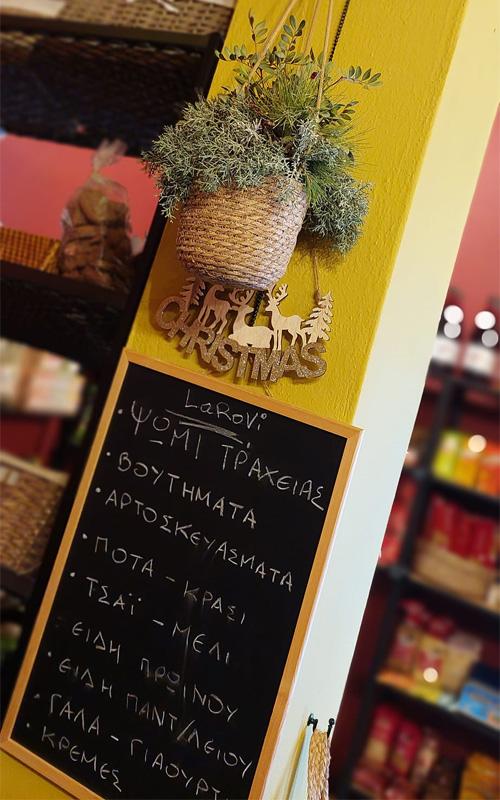 CHRISTMAS
LaRoVi
• ΨΩΜΙ ΤΡΑΧΕΙΑΣ
• ΒΟΥΤΗΜΑΤΑ
• ΑΡΤΟΣΚΕΥΑΣΜΑΤΑ
• ΠΟΤΑ - ΚΡΑΣΙ
• ΤΣΑΪ - ΜΕΛΙ
ΕΙΔΗ ΠΡΩΙΝΟΥ
• ΕΙΔΗ ΠΑΝΤ/ΛΕΙΟΥ
• ΓΑΛΑ - ΓΙΑΟΥΡΤΙ
• ΚΡΕΜΕΣ